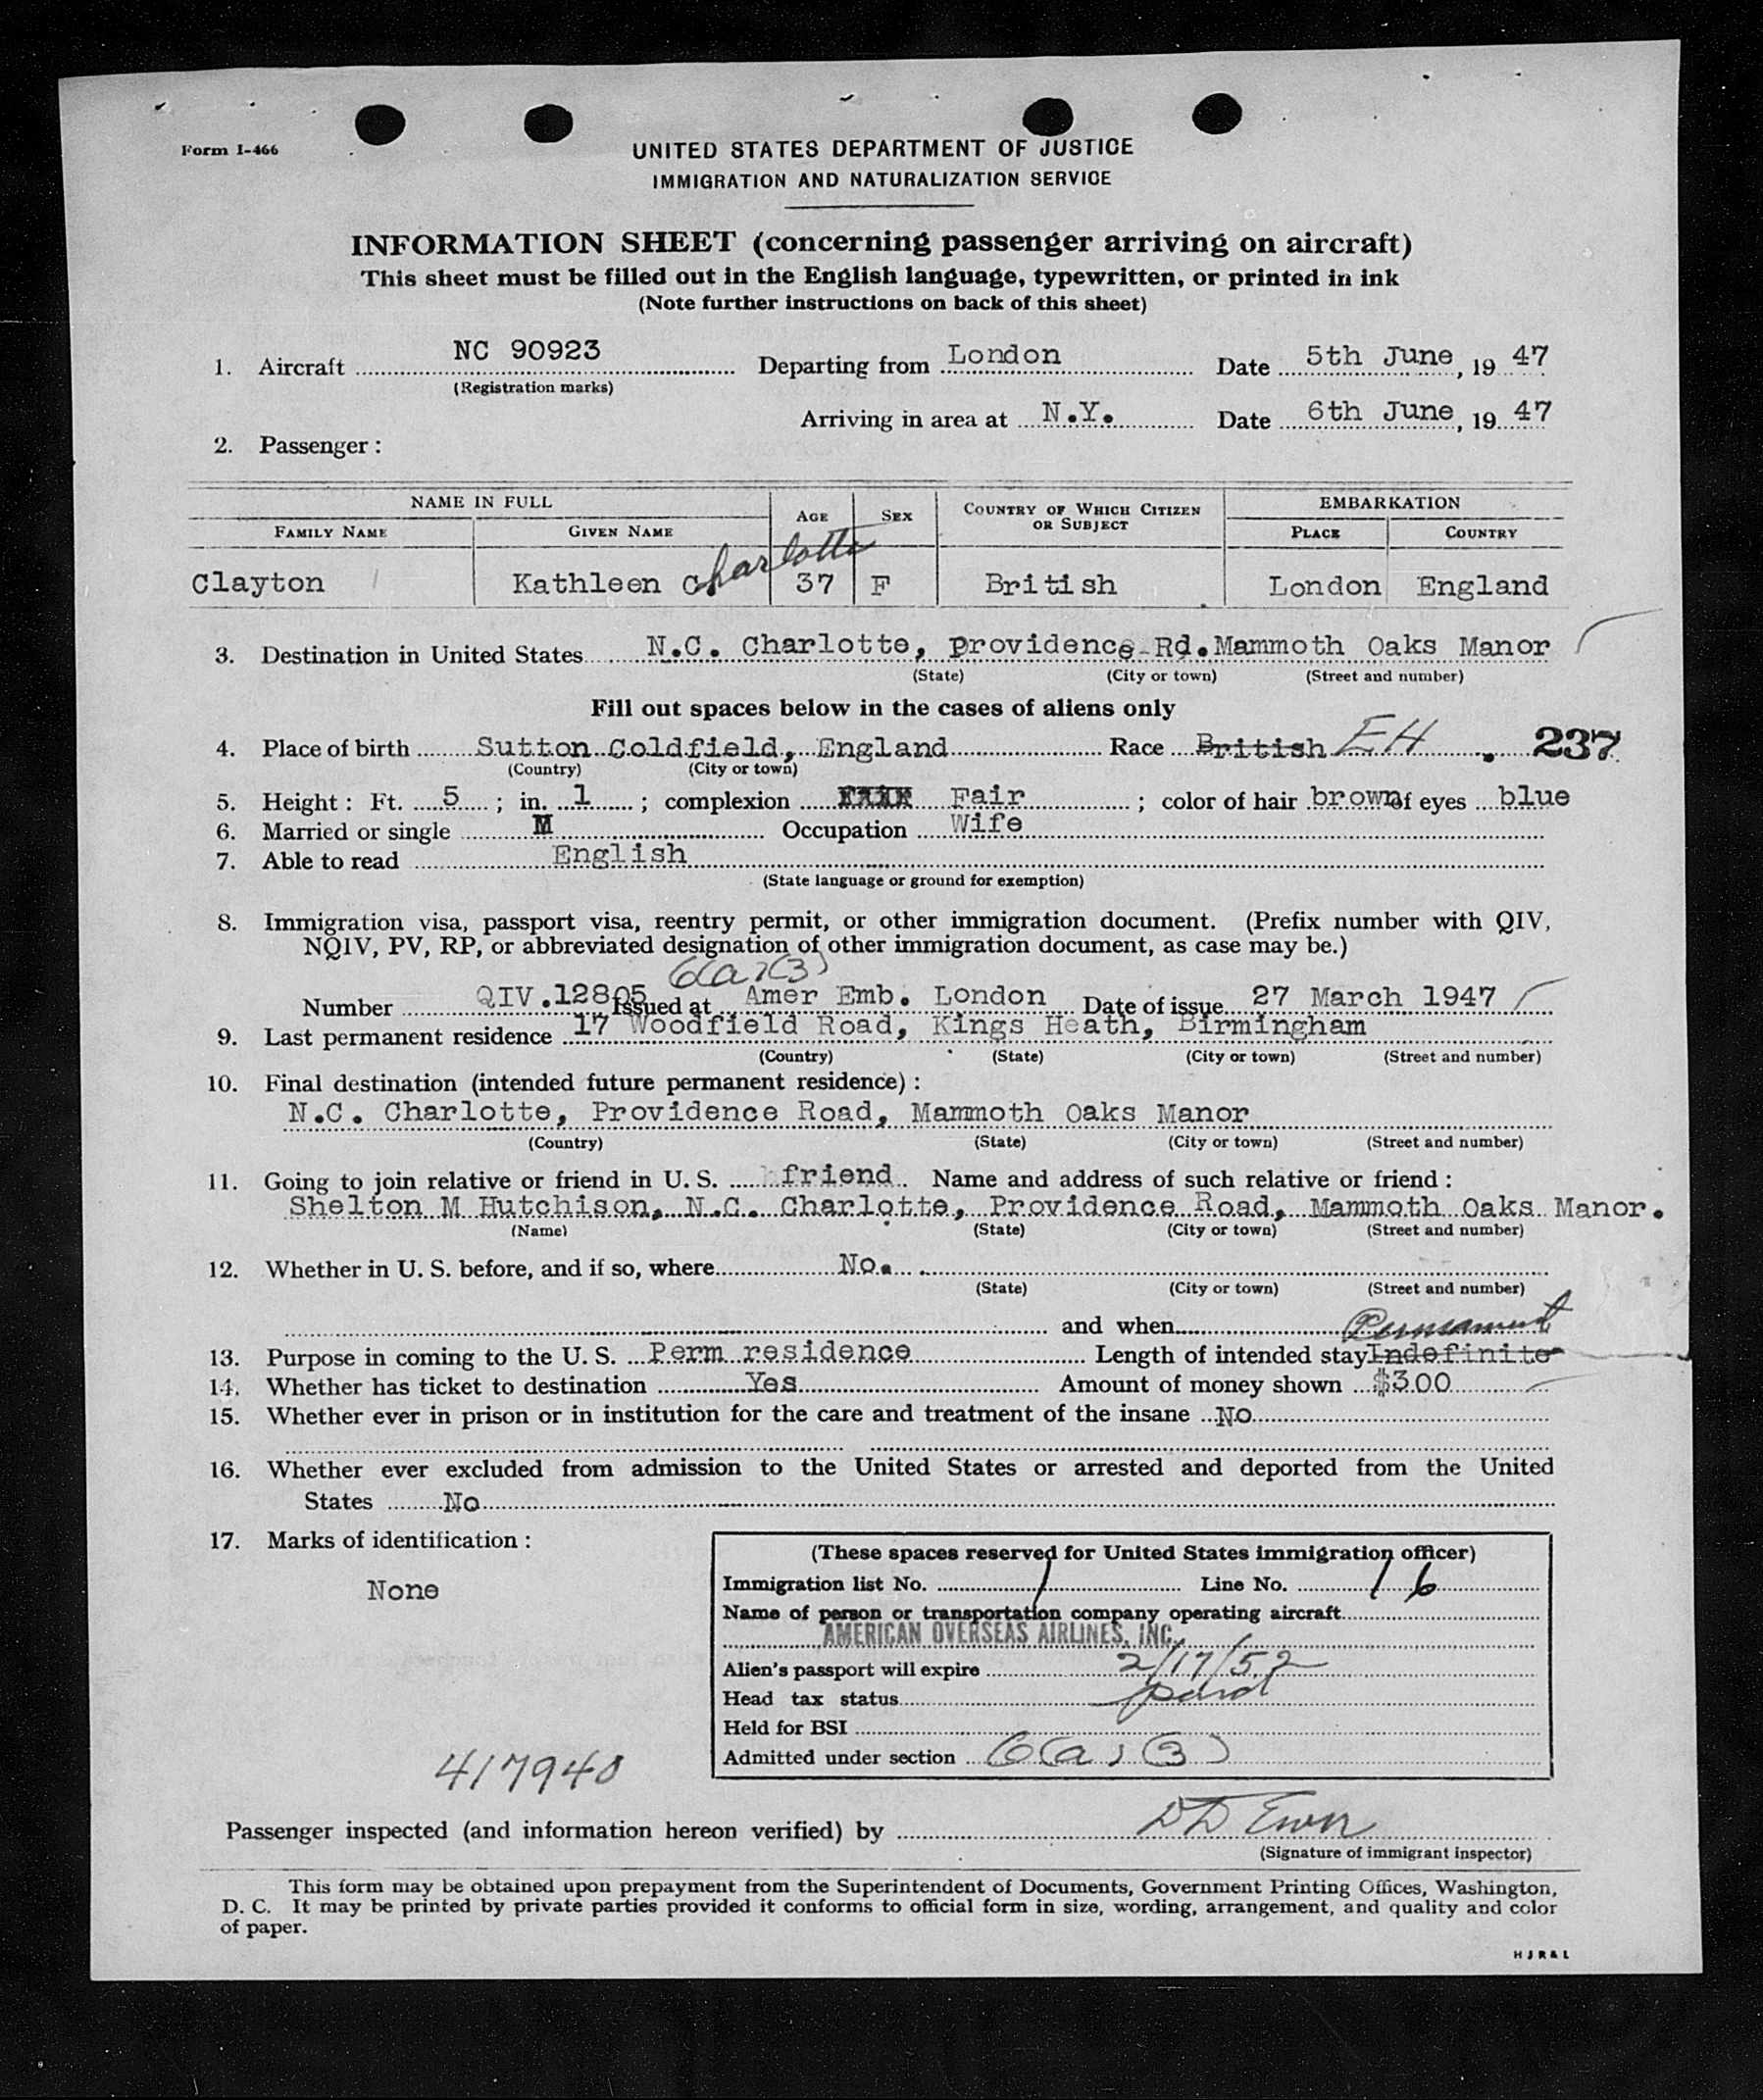 Form I-466
UNITED STATES DEPARTMENT OF JUSTICE
IMMIGRATION AND NATURALIZATION SERVICE
INFORMATION SHEET (concerning passenger arriving on aircraft)
This sheet must be filled out in the English language, typewritten, or printed in ink
(Note further instructions on back of this sheet)
1. Aircraft NC 90923 Departing from London Date 5th June, 19 47
(Registration marks)
Arriving in area at N.Y. Date 6th June, 19 47
2. Passenger:
NAME IN FULL AGE SEX COUNTRY OF WHICH CITIZEN OR SUBJECT EMBARKATION
FAMILY NAME GIVEN NAME PLACE COUNTRY
Clayton Kathleen Charlotte 37 F British London England
3. Destination in United States N.C. Charlotte, Providence Rd. Mammoth Oaks Manor
(State) (City or town) (Street and number)
Fill out spaces below in the cases of aliens only
4. Place of birth Sutton Coldfield, England Race British EH 237
(Country) (City or town)
5. Height: Ft. 5; in. 1; complexion Fair; color of hair brown of eyes blue
6. Married or single M Occupation Wife
7. Able to read English
(State language or ground for exemption)
8. Immigration visa, passport visa, reentry permit, or other immigration document. (Prefix number with QIV,
NQIV, PV, RP, or abbreviated designation of other immigration document, as case may be.)
6(a)(3)
Number QIV.12805 Issued at Amer Emb. London Date of issue 27 March 1947
9. Last permanent residence 17 Woodfield Road, Kings Heath, Birmingham
(Country) (State) (City or town) (Street and number)
10. Final destination (intended future permanent residence):
N.C. Charlotte, Providence Road, Mammoth Oaks Manor
(Country) (State) (City or town) (Street and number)
11. Going to join relative or friend in U. S. friend Name and address of such relative or friend:
Shelton M Hutchison, N.C. Charlotte, Providence Road, Mammoth Oaks Manor.
(Name) (State) (City or town) (Street and number)
12. Whether in U. S. before, and if so, where No.
(State) (City or town) (Street and number)
and when Permanent
13. Purpose in coming to the U. S. Perm residence Length of intended stay Indefinite
14. Whether has ticket to destination Yes Amount of money shown $300
15. Whether ever in prison or in institution for the care and treatment of the insane No
16. Whether ever excluded from admission to the United States or arrested and deported from the United
States No
17. Marks of identification:
None
(These spaces reserved for United States immigration officer)
Immigration list No. 1 Line No. 16
Name of person or transportation company operating aircraft
AMERICAN OVERSEAS AIRLINES, INC.
Alien's passport will expire 2/17/52
Head tax status paid
Held for BSI
Admitted under section 6(a)(3)
417940
Passenger inspected (and information hereon verified) by
(Signature of immigrant inspector)
This form may be obtained upon prepayment from the Superintendent of Documents, Government Printing Offices, Washington,
D. C. It may be printed by private parties provided it conforms to official form in size, wording, arrangement, and quality and color
of paper.
HJR&L